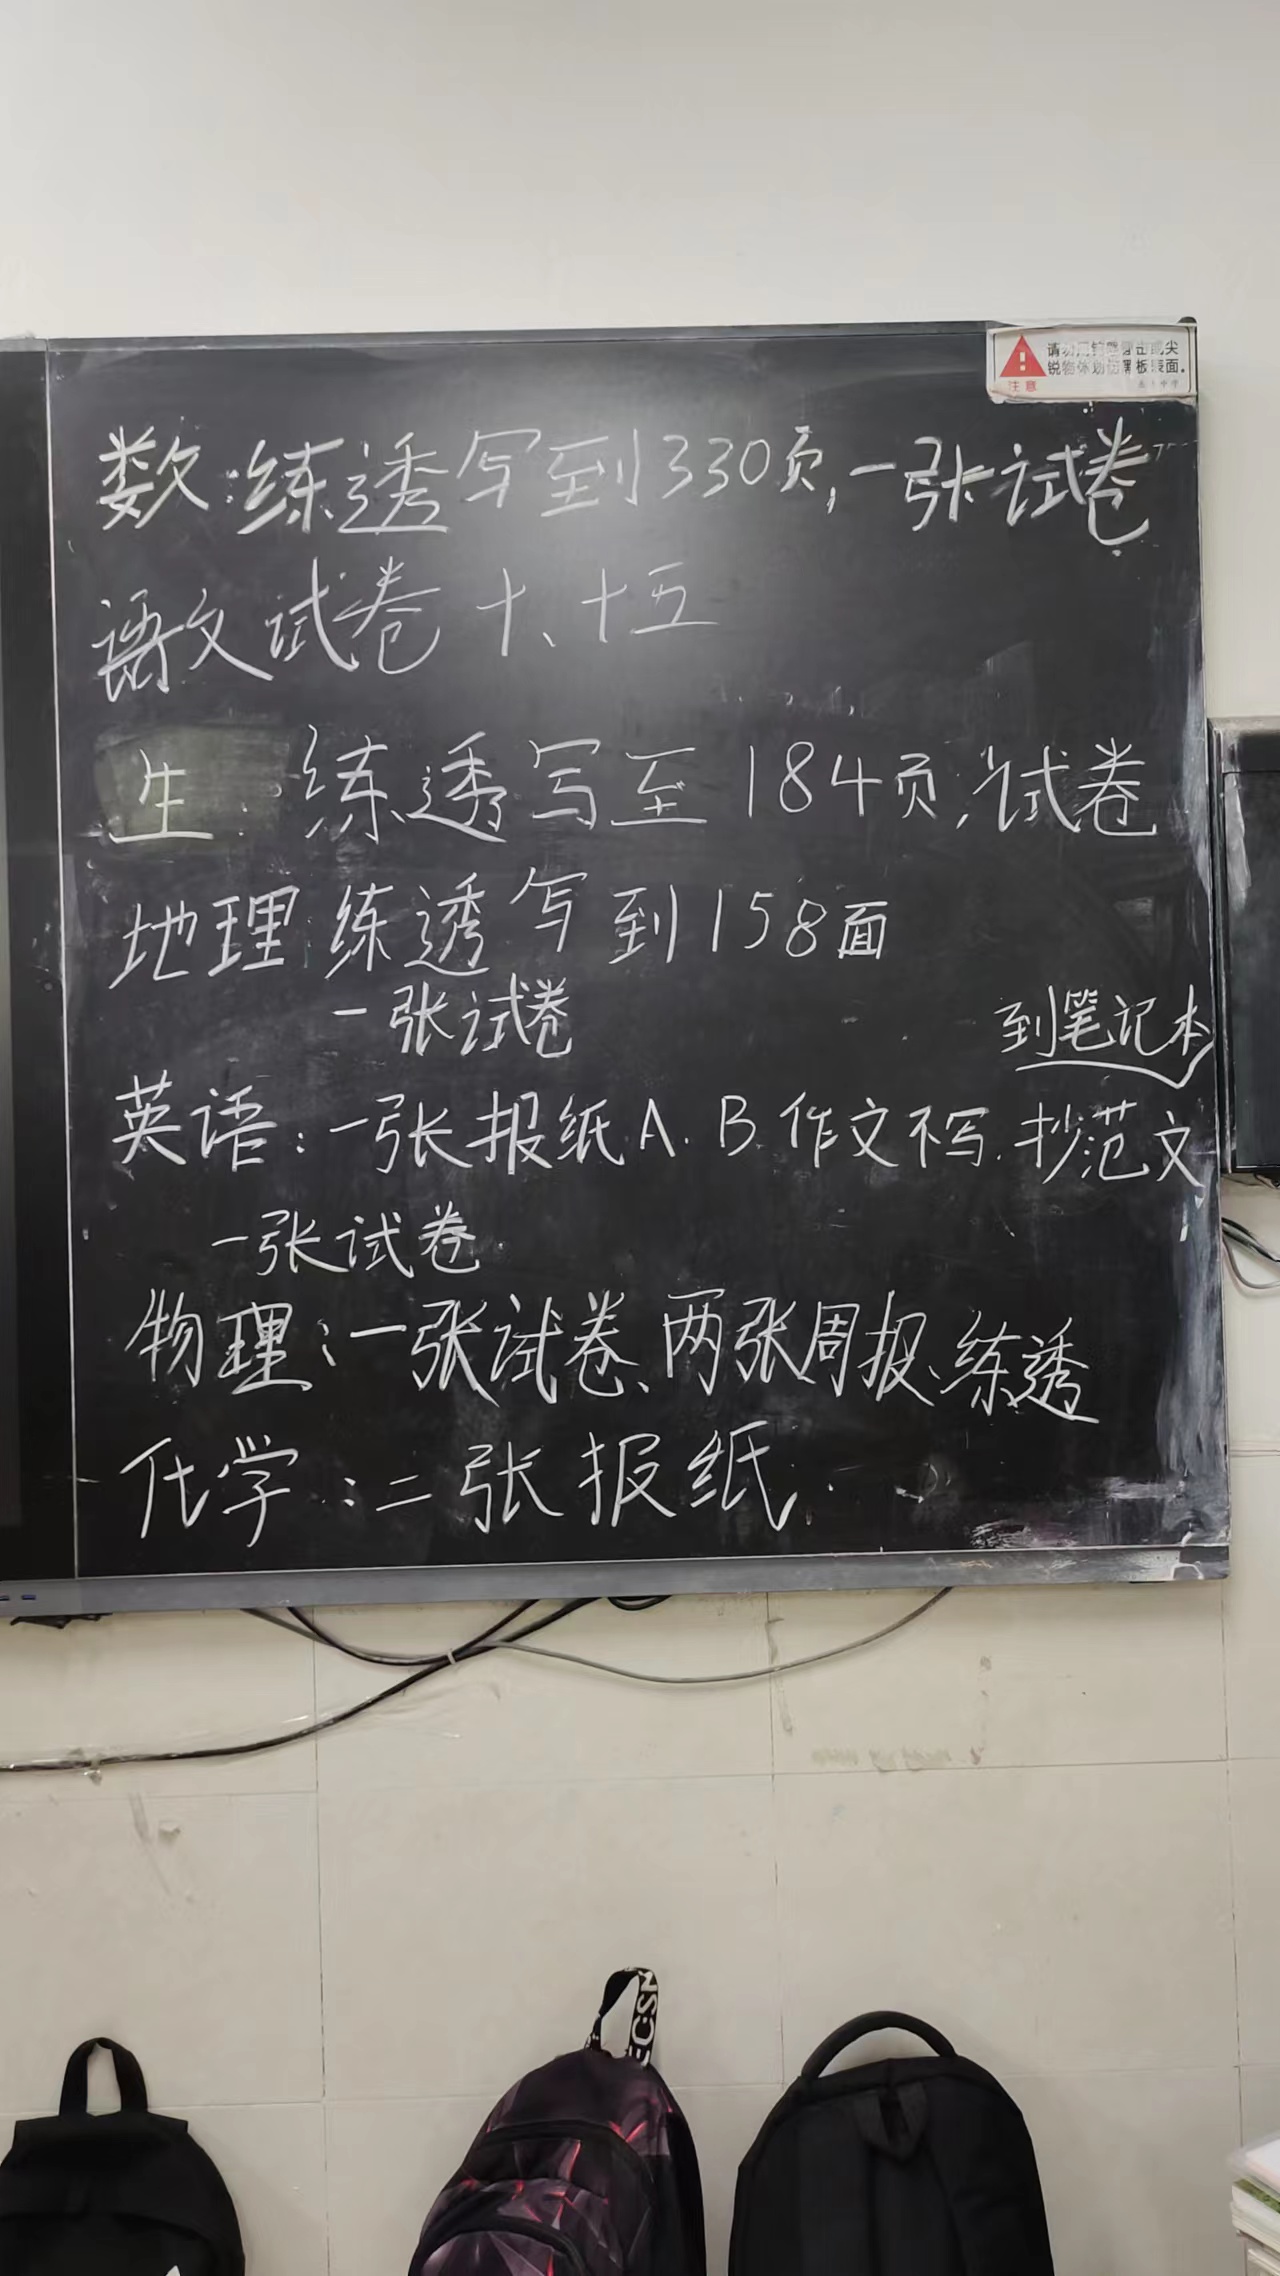 请勿用钝器或尖
锐物体划伤黑板表面。
注意
数:练透写到330页,一张试卷
语文试卷十、十五
生:练透写至184页,试卷
地理:练透写到158面
一张试卷
到笔记本
英语:一张报纸A.B.作文不写.抄范文
一张试卷
物理:一张试卷、两张周报、练透
化学:二张报纸.